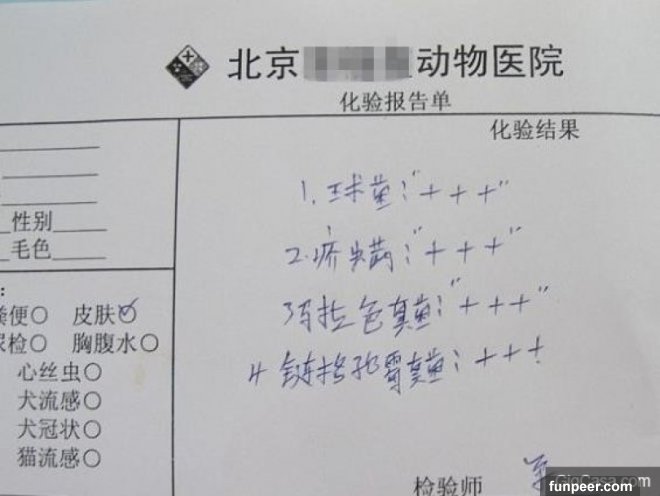 北京 动物医院
化验报告单
化验结果
性别
毛色
:
粪便○ 皮肤○
尿检○ 胸腹水○
心丝虫○
犬流感○
犬冠状○
猫流感○
1. 球菌:"+++"
2. 疥螨:"+++"
3 马拉色真菌:"+++"
4 链格孢霉真菌:+++
检验师
GigCasa.com
funpeer.com